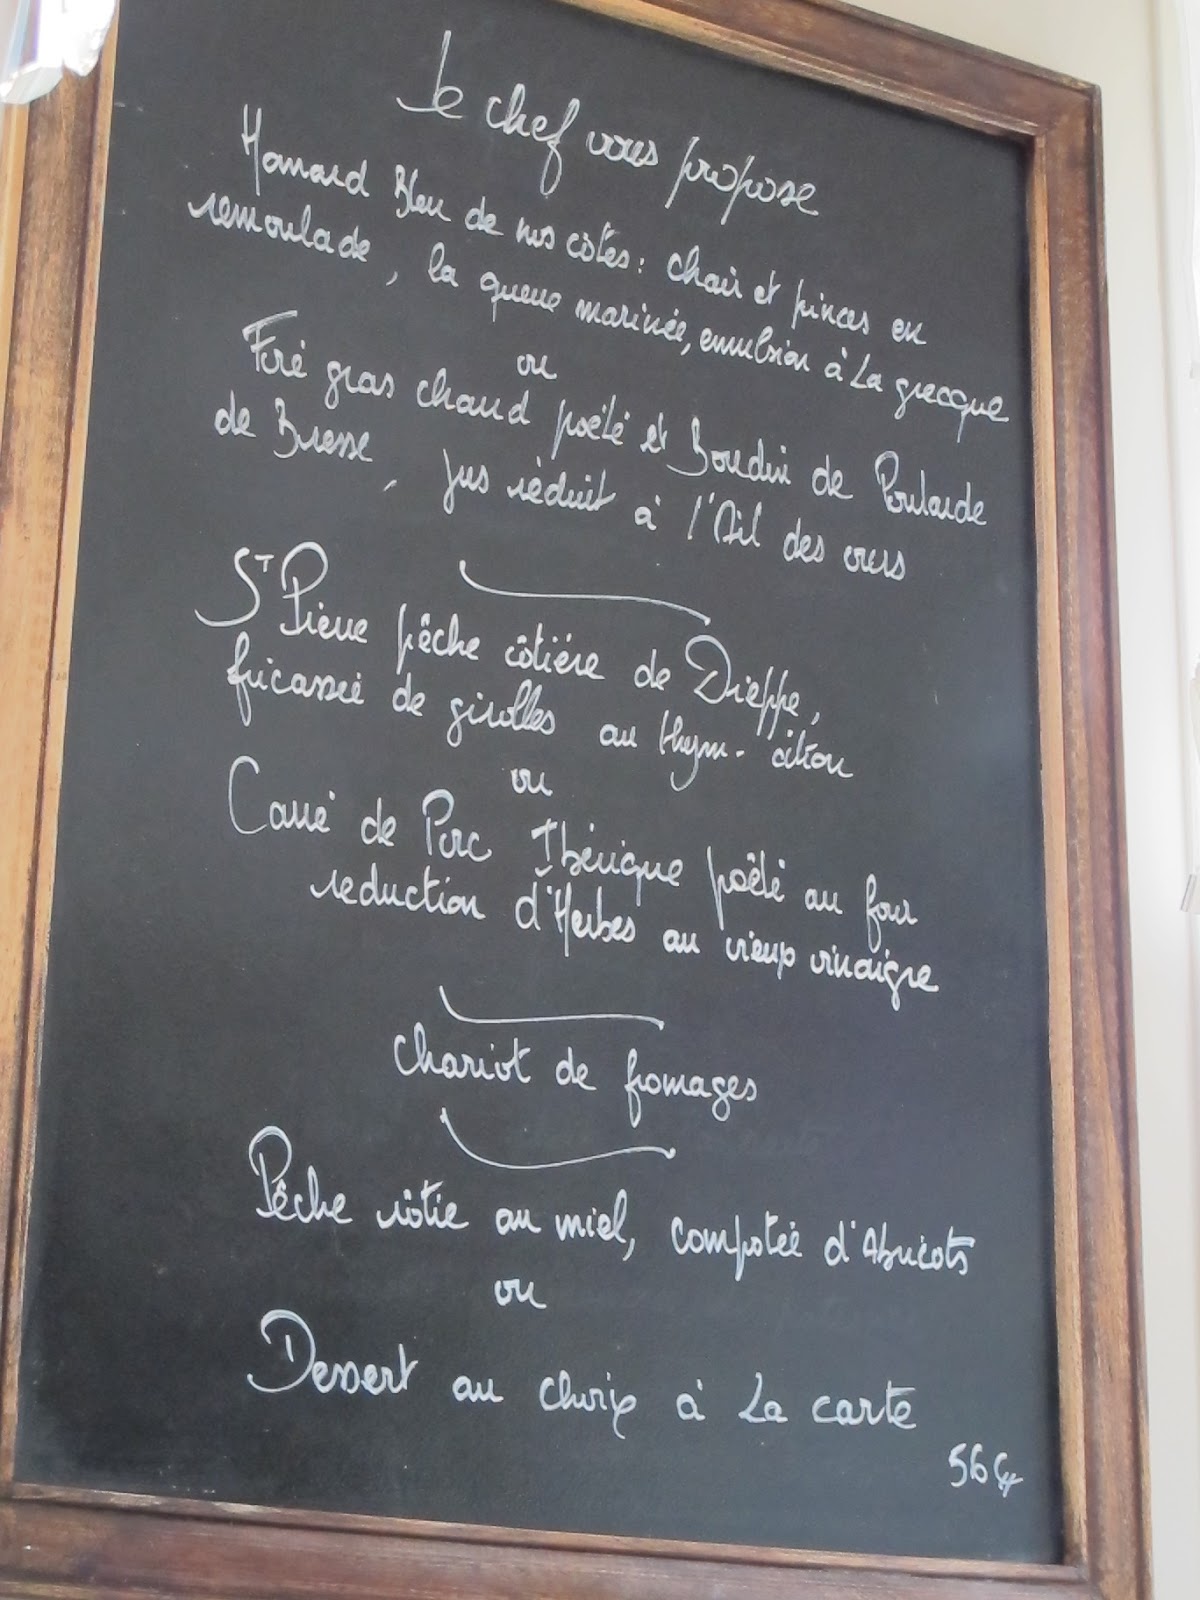 Le chef vous propose
Homard Bleu de nos côtes : chair et pinces en
remoulade, la queue marinée, emulsion à La grecque
ou
Foie gras chaud poêlé et Boudin de Poularde
de Bresse, jus réduit à l'Ail des ours
St Pierre pêche côtiére de Dieppe,
fricassée de girolles au thym-citron
ou
Carré de Porc Ibérique poêlé au four
reduction d'Herbes au vieux vinaigre
Chariot de fromages
Pêche rôtie au miel, compotée d'Abricots
ou
Dessert au choix à La carte
56 €